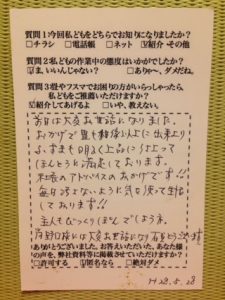 質問1今回私どもをどちらでお知りになりましたか?
□チラシ □電話帳 □ネット ☑紹介 その他
質問2私どもの作業中の態度はいかがでしたか?
☑ま、いいんじゃない? □ありゃ〜、ダメだね。
質問3畳やフスマでお困りの方がいらっしゃったら、
私どもをご推薦いただけますか?
☑紹介してあげるよ □いや、教えない。
先日は大変お世話になりました。
おかげで畳も
ふすまも 上品に
ほんとうに満足しております。
社長のアドバイスのおかげです!!
毎日汚さないように気を使って生活
しております!!
主人もびっくり
大変お世話になり
ありがとうございました。お答えいただいた、あなた様
の声を、弊社資料等に掲載させていただけますか?
□許可する ☑匿名なら □絶対ダメ
H22.5.28